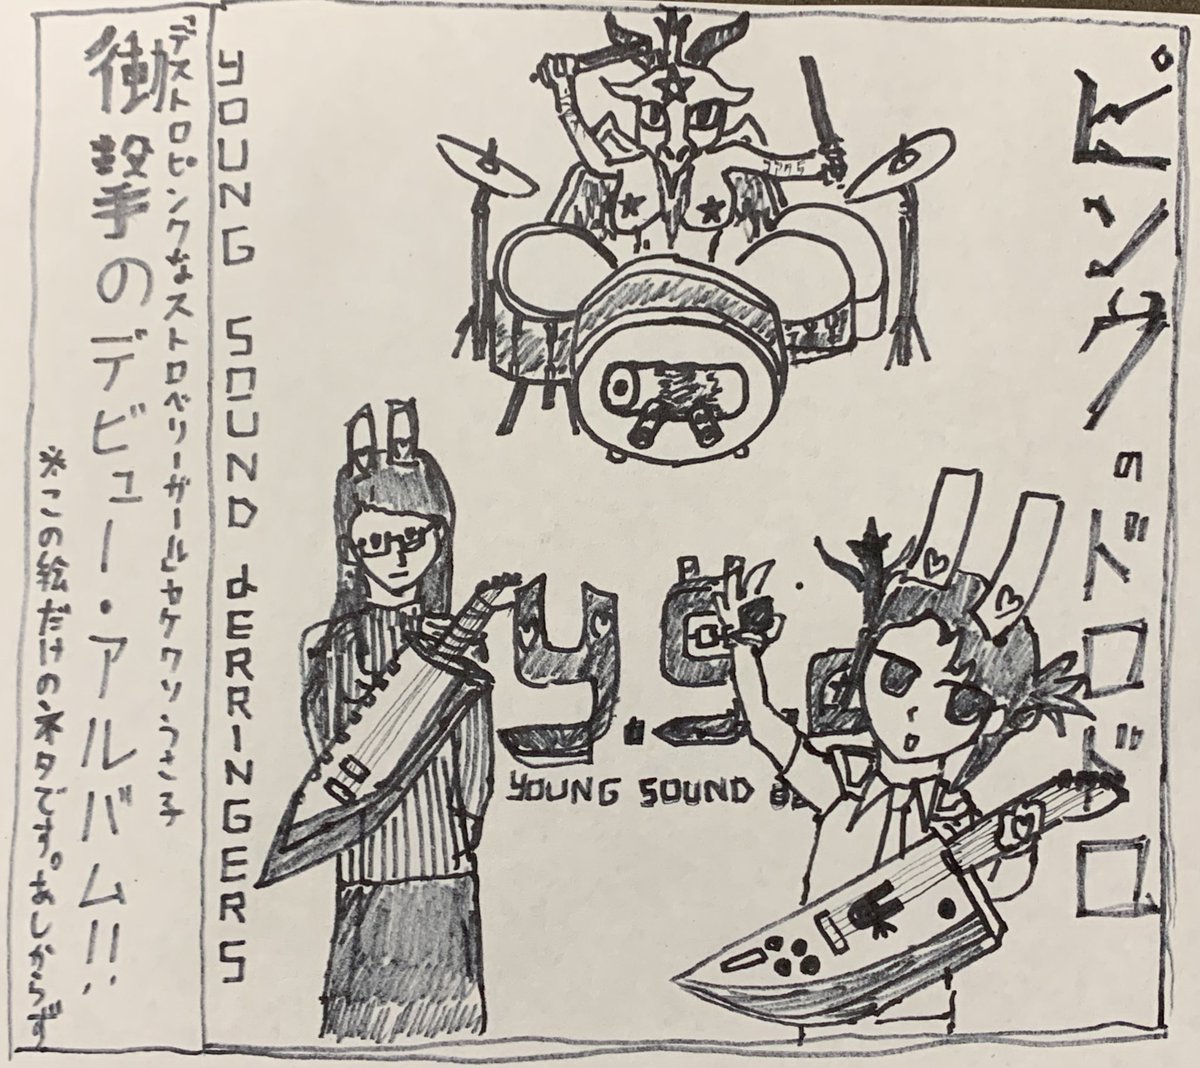 ピンクのドロドロ
y.s.
YOUNG SOUND
YOUNG SOUND dERRINGERS
デストロピンクなストロベリーガールヤケクソうさ子
衝撃のデビュー・アルバム!!
※この絵だけのネタです。あしからず